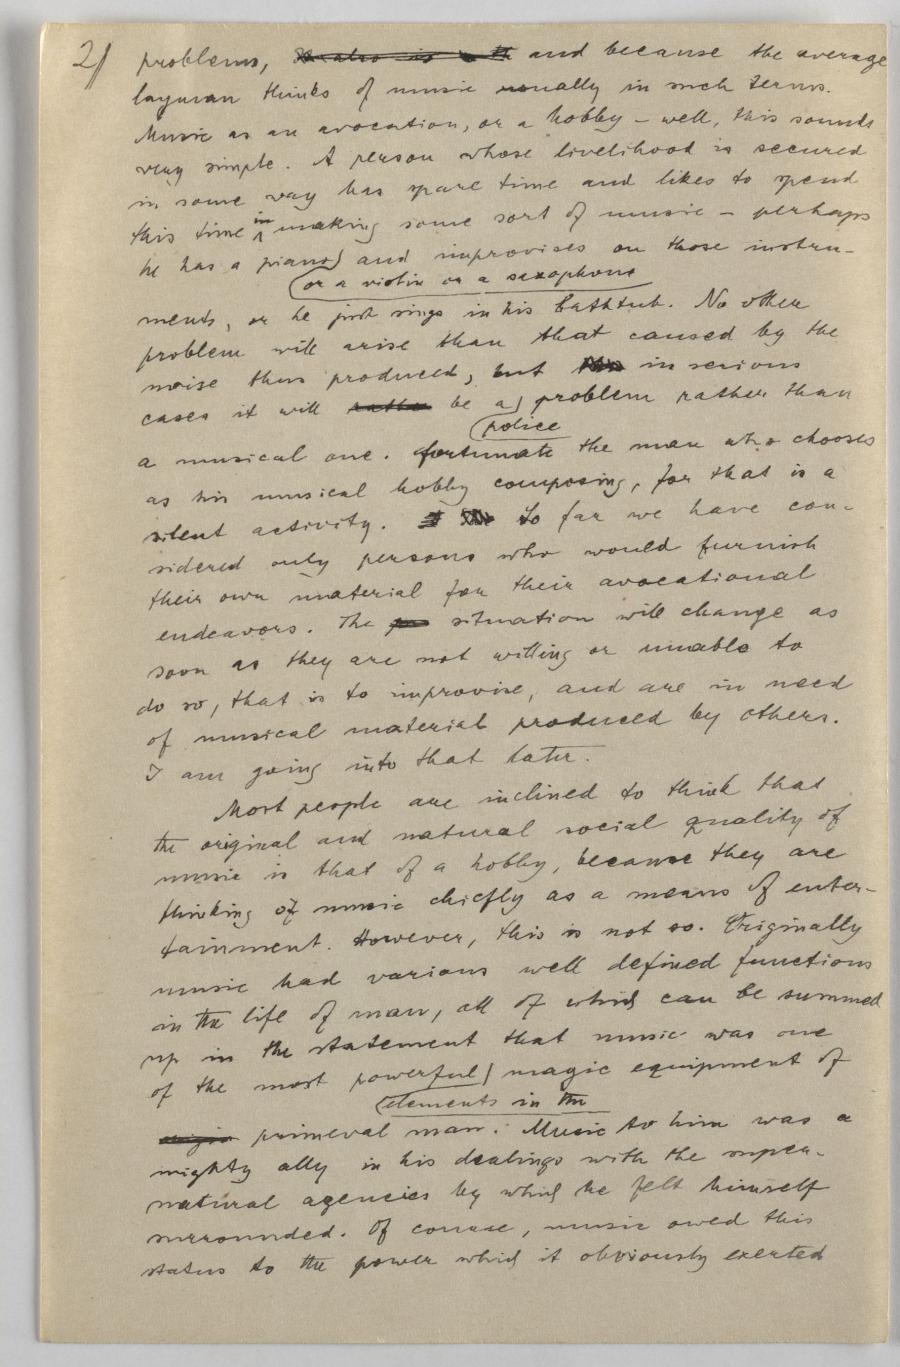 2/ problems, and because the average
layman thinks of music usually in such terms.
Music as an avocation, or a hobby – well, this sounds
very simple. A person whose livelihood is secured
in some way has spare time and likes to spend
this time in making some sort of music – perhaps
he has a piano) and improvises on those instru-
(or a violin or a saxophone
ments, or he just sings in his bathtub. No other
problem will arise than that caused by the
noise thus produced, but in serious
cases it will rather be a) problem rather than
(police
a musical one. Fortunate the man who chooses
as his musical hobby composing, for that is a
silent activity. So far we have con-
sidered only persons who would furnish
their own material for their avocational
endeavors. The situation will change as
soon as they are not willing or unable to
do so, that is to improvise, and are in need
of musical material produced by others.
I am going into that later.
Most people are inclined to think that
the original and natural social quality of
music is that of a hobby, because they are
thinking of music chiefly as a means of enter-
tainment. However, this is not so. Originally
music had various well defined functions
in the life of man, all of which can be summed
up in the statement that music was one
of the most powerful) magic equipment of
(elements in the
primeval man. Music to him was a
mighty ally in his dealings with the super-
natural agencies by which he felt himself
surrounded. Of course, music owed this
status to the power which it obviously exerted